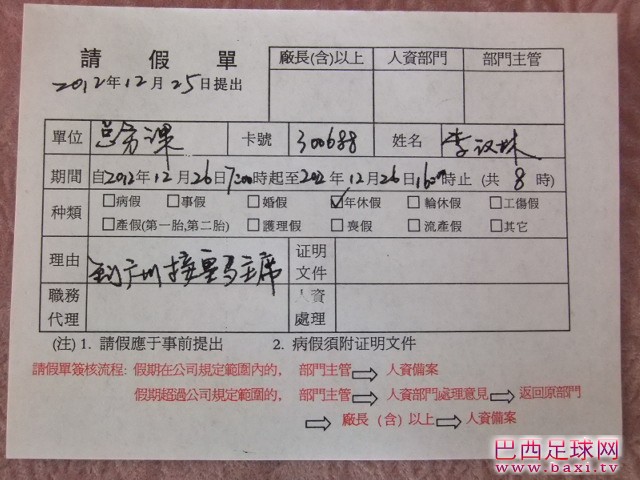 請 假 單 廠長(含)以上 人資部門 部門主管
2012年12月25日提出
單位 總务课 卡號 300688 姓名 李
期間 自2012年12月26日7:00時起至2012年12月26日16:00時止 (共 8 時)
種類 □病假 □事假 □婚假 ☑年休假 □輪休假 □工傷假
□產假(第一胎,第二胎) □護理假 □喪假 □流產假 □其它
理由 到广州接皇马主席 证明文件
職務代理 人資處理
(注) 1. 請假應于事前提出 2. 病假須附证明文件
請假單簽核流程: 假期在公司規定範圍內的, 部門主管⇨人資備案
假期超過公司規定範圍的, 部門主管⇨人資部門處理意見⇨返回原部門
⇨ 廠長 (含) 以上⇨人資備案
巴西足球网
www.baxi.tv